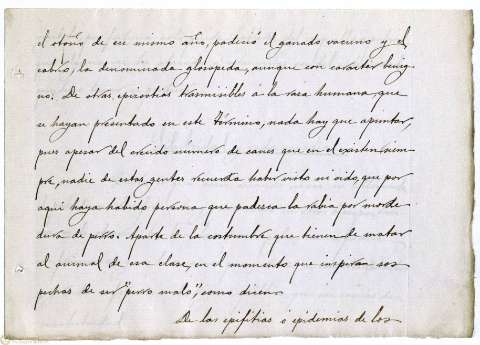 el otoño de ese mismo año, padeció el ganado vacuno y el
cabrío, la denominada glosopeda, aunque con caracter benig
no. De otras epizootias trasmisibles á la raza humana que
se hayan presentado en este Término, nada hay que apuntar,
pues apesar del crecido número de canes que en el existen siem
pre, nadie de estas gentes recuerda haber visto ni oido, que por
aqui haya habido persona que padesca la rabia por morde
dura de perro. Aparte de la costumbre que tienen de matar
al animal de esa clase, en el momento que inspiran sos
pechas de ser "perro malo", como dicen.
De las epifitias ó epidemias de los